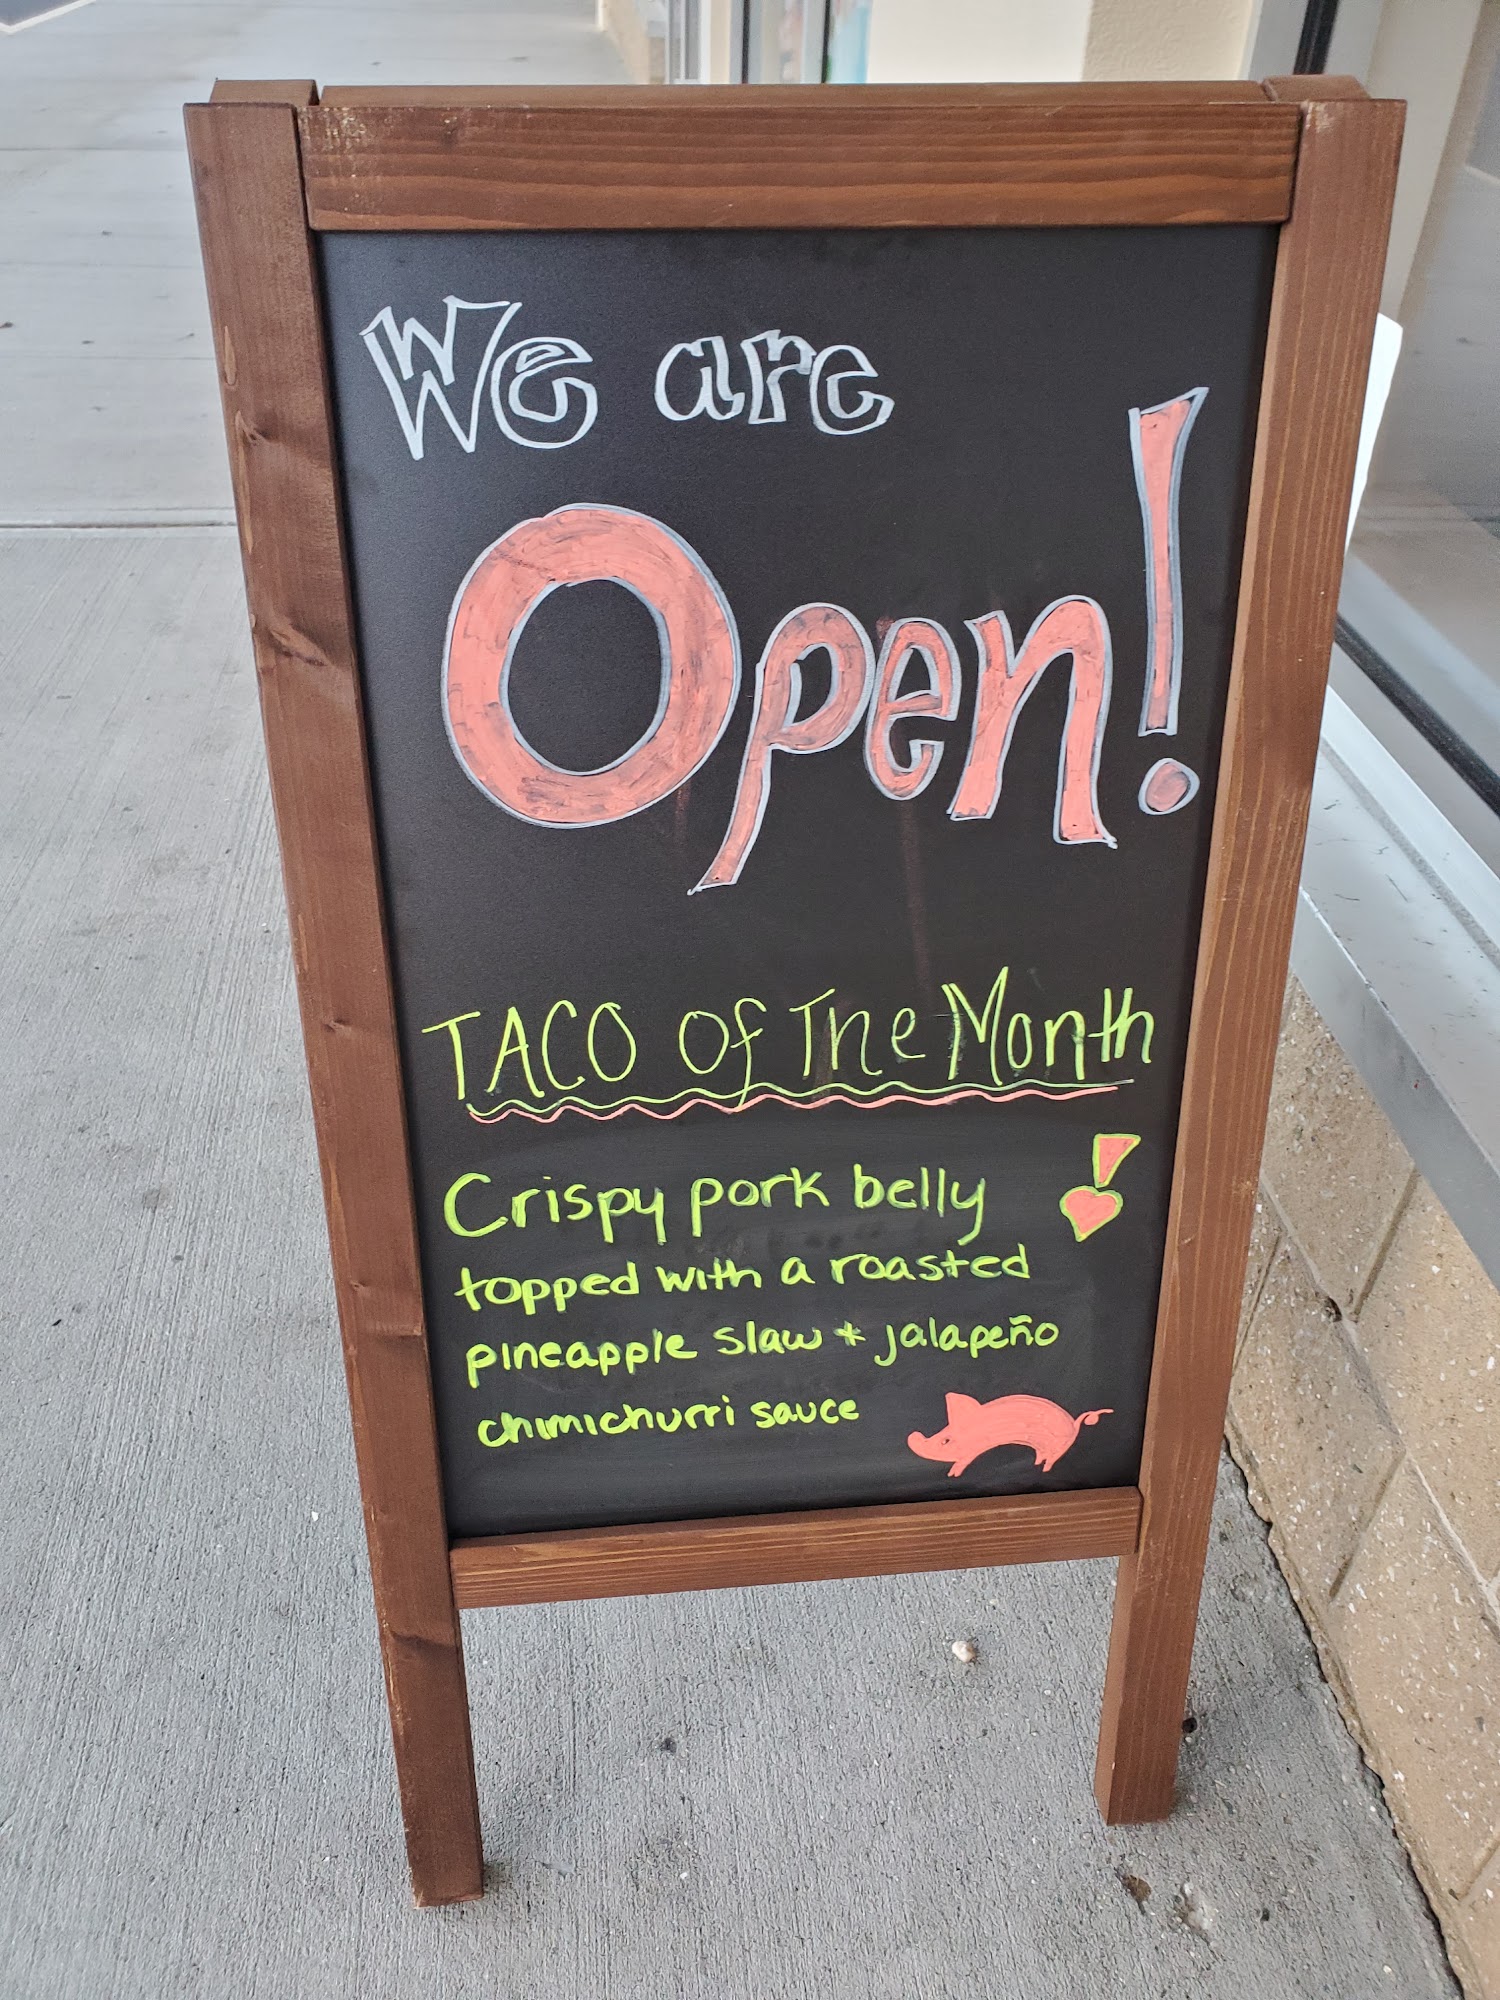 We are
Open!
TACO Of The Month
Crispy pork belly
topped with a roasted
pineapple slaw + jalapeño
chimichurri sauce